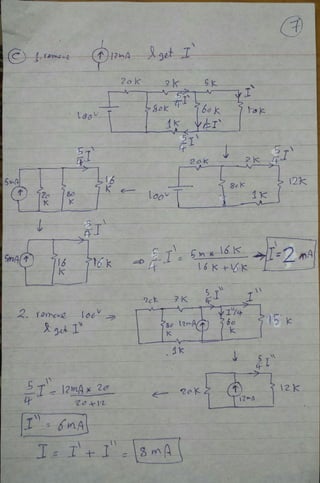 7
C 1. remove 12mA & get I'
20K 3K 5K
100V 80K 5/4 I' 60K I' 15K
1K 5/4 I'
5/4 I'
5mA 20K 80K 16K
20K 3K 5/4 I'
100V 80K 12K
1K
5/4 I'
5mA 16K 16K
⇒ 5/4 I' = 5m × 16K / 16K + 16K → I' = 2 mA
2. remove 100V ⇒
& get I"
20K 3K 5/4 I" I"
80K 12mA I"/4 60K 15K
1K
5/4 I"
20K 12mA 12K
5/4 I" = 12mA × 20 / 20 + 12
I" = 6mA
I = I' + I" = 8mA